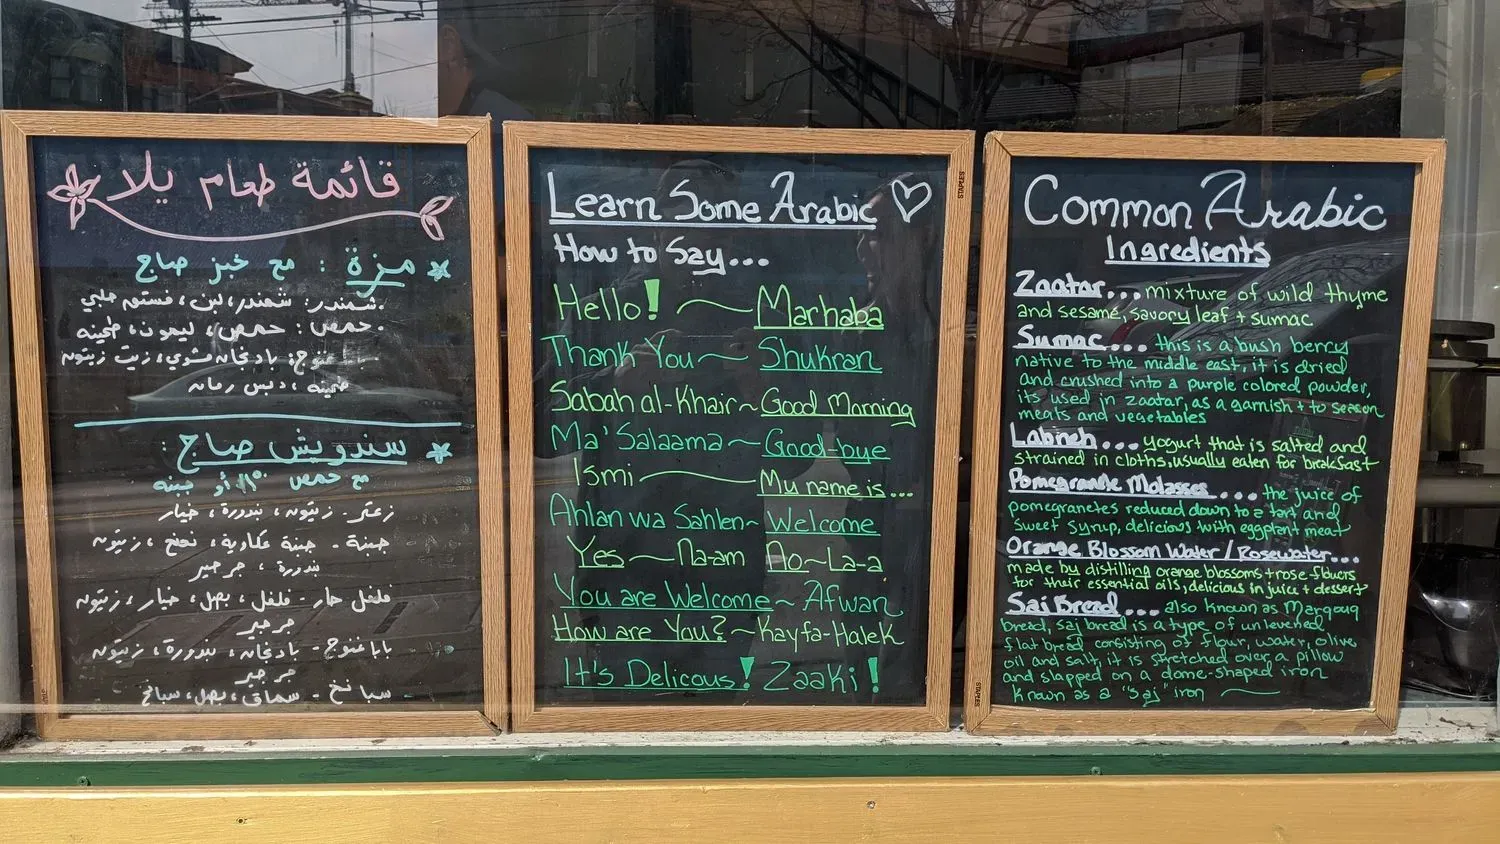 قائمة طعام يلا
مزة : مع خبز صاج
شمندر: شمندر، لبن، فستق حلبي
حمص: حمص، ليمون، طحينه
غنوج: باذنجان مشوي، زيت زيتون
طحينه، دبس رمان
سندويش صاج :
مع حمص أو جبنه
زعتر - زيتون، بندورة، خيار
جبنة - جبنة عكاوية، نعنع، زيتون
بندورة، جرجير
فلفل حار - فلفل، بصل، خيار، زيتون
جرجير
بابا غنوج - باذنجان، بندورة، زيتون
جرجير
سبانخ - سماق، بصل، سبانخ
Learn Some Arabic
How to Say...
Hello! ~ Marhaba
Thank You ~ Shukran
Sabah al-Khair ~ Good Morning
Ma' Salaama ~ Good-bye
Ismi ~ My name is...
Ahlan wa Sahlen ~ Welcome
Yes ~ Na-am No ~ La-a
You are Welcome ~ Afwan
How are You? ~ Kayfa-Halek
It's Delicous! Zaaki!
STAPLES
Common Arabic
Ingredients
Zaatar... mixture of wild thyme
and sesame, savory leaf + sumac
Sumac... this is a bush berry
native to the middle east, it is dried
and crushed into a purple colored powder,
its used in zaatar, as a garnish + to season
meats and vegetables
Labneh... yogurt that is salted and
strained in cloths, usually eaten for breakfast
Pomegranate Molasses... the juice of
pomegranetes reduced down to a tart and
sweet syrup, delicious with eggplant + meat
Orange Blossom Water / Rosewater...
made by distilling orange blossoms + rose flowers
for their essential oils, delicious in juice + dessert
Saj Bread... also known as Marqouq
bread, saj bread is a type of unlevened
flat bread consisting of flour, water, olive
oil and salt, it is stretched over a pillow
and slapped on a dome-shaped iron
known as a "saj" iron
STAPLES